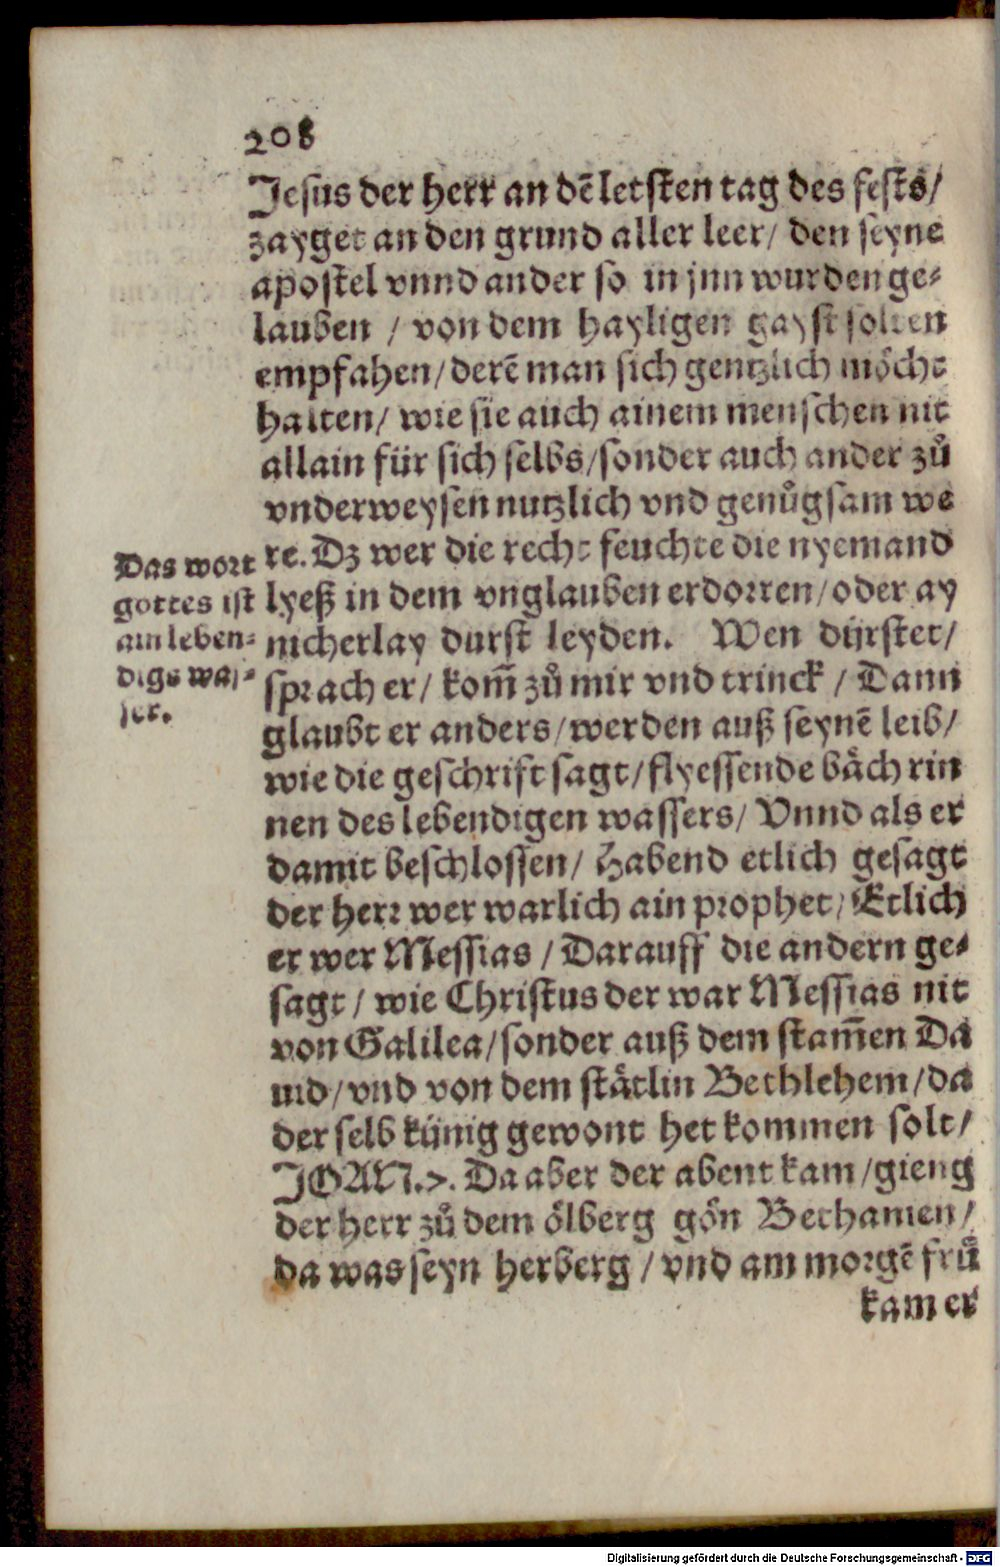 208
Jesus der herr an dē letsten tag des fests/
zayget an den grund aller leer/ den seyne
apostel vnnd ander so in jnn wurden ge⸗
lauben / von dem hayligen gayst solten
empfahen/ derē man sich gentzlich möcht
halten/ wie sie auch ainem menschen nit
allain für sich selbs/sonder auch ander zů
vnderweysen nutzlich vnd genůgsam we
re. Dz wer die recht feuchte die nyemand
lyeß in dem vnglauben erdorren/oder ay
nicherlay durst leyden. Wen dürstet/
sprach er/ kom̃ zů mir vnd trinck / Dann
glaubt er anders/werden auß seynē leib/
wie die geschrift sagt/flyessende bäch rin
nen des lebendigen wassers/ Vnnd als er
damit beschlossen/ Habend etlich gesagt
der herr wer warlich ain prophet/ Etlich
er wer Messias / Darauff die andern ge⸗
sagt / wie Christus der war Messias nit
von Galilea/sonder auß dem stam̃en Da
uid/vnd von dem stätlin Bethlehem/da
der selb künig gewont het kommen solt/
JOAN.7. Da aber der abent kam/gieng
der herr zů dem ölberg gön Bethanien/
da was seyn herberg / vnd am morgē frů
kam er
Das wort
gottes ist
ain leben⸗
digs was⸗
ser.
Digitalisierung gefördert durch die Deutsche Forschungsgemeinschaft - DFG